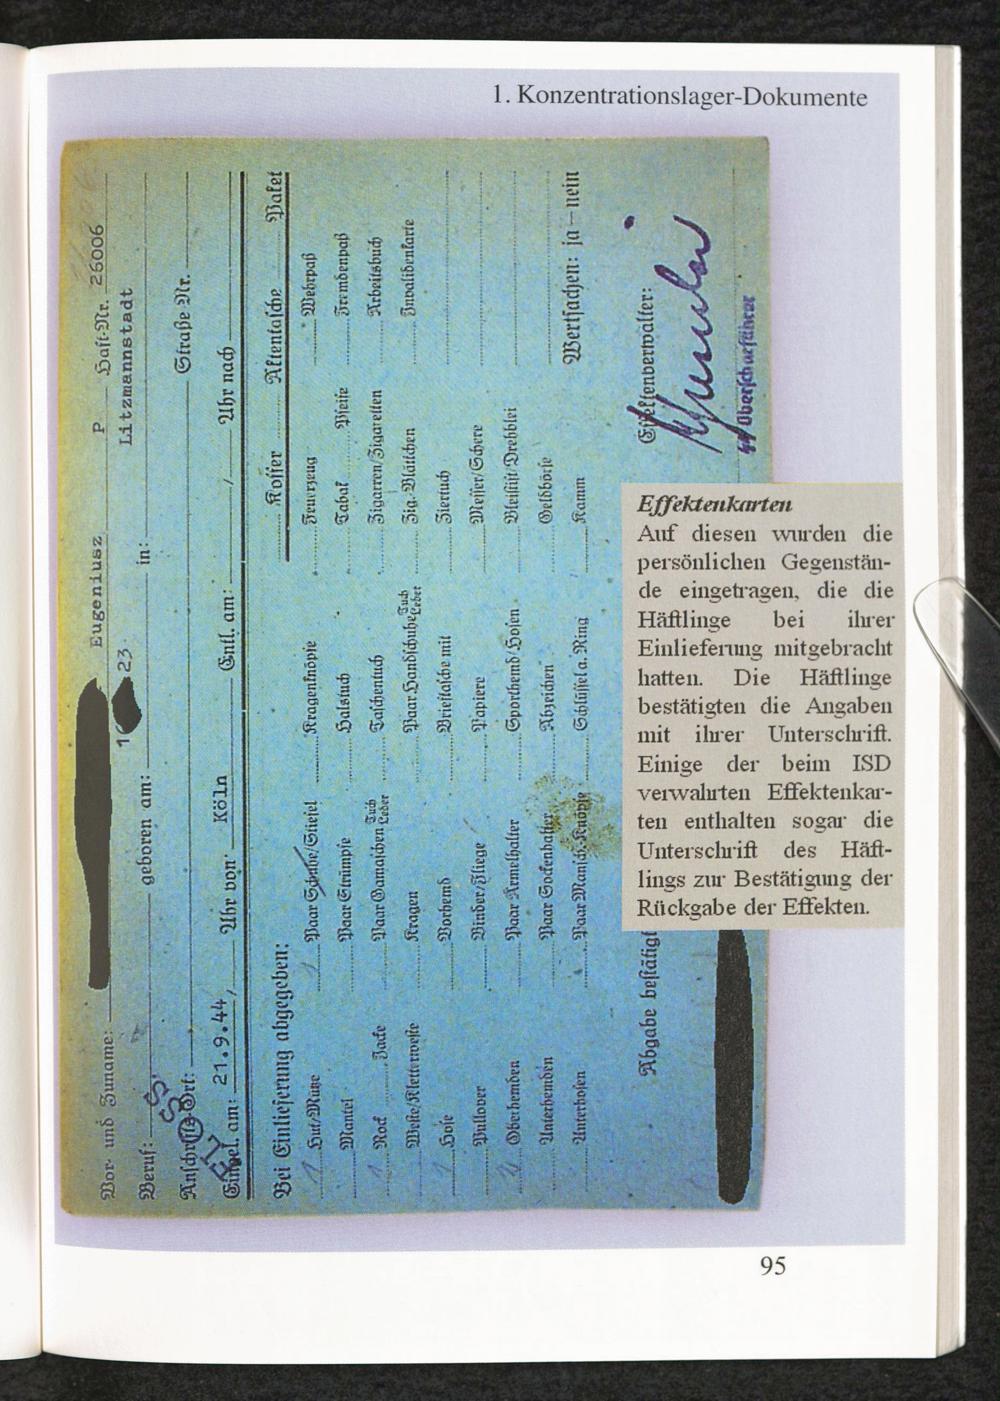 1. Konzentrationslager-Dokumente
Vor- und Zuname: Eugeniusz P Haft-Nr. 26006
Beruf: geboren am: 1 23. in: Litzmannstadt
Anschrift: Ort: Straße Nr.
Eingel. am: 21.9.44, Uhr von: Köln Entl. am: / Uhr nach
Bei Einlieferung abgegeben: Koffer Aktentasche Paket
1 Hut/Mütze 1 Paar Schuhe/Stiefel Kragenknöpfe Feuerzeug Wehrpaß
Mantel Paar Strümpfe Halstuch Tabak Pfeife Fremdenpaß
1 Rock Jacke Paar Gamaschen Tuch Leder Taschentuch Zigarren/Zigaretten Arbeitsbuch
Weste/Kletterweste Kragen Paar Handschuhe Tuch Leder Zig.-Blättchen Invalidenkarte
1 Hose Vorhemd Brieftasche mit Ziertuch
Pullover Binder/Fliege Papiere Messer/Schere
Oberhemden Paar Ärmelhalter Sporthemd/Hosen Bleistift/Drehblei
Unterhemden Paar Sockenhalter Abzeichen Geldbörse
Unterhosen Paar Mansch.-Knöpfe Schlüssel a. Ring Kamm Wertsachen: ja – nein
Abgabe bestätigt Effektenverwalter:
SS Oberscharführer
Effektenkarten
Auf diesen wurden die
persönlichen Gegenstän-
de eingetragen, die die
Häftlinge bei ihrer
Einlieferung mitgebracht
hatten. Die Häftlinge
bestätigten die Angaben
mit ihrer Unterschrift.
Einige der beim ISD
verwahrten Effektenkar-
ten enthalten sogar die
Unterschrift des Häft-
lings zur Bestätigung der
Rückgabe der Effekten.
95